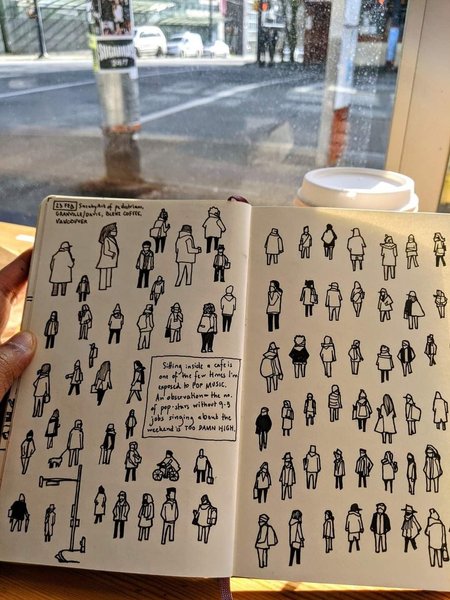 23 FEB Sneaky Art of pedestrians.
GRANVILLE/DAVIE, BLENZ COFFEE,
VANCOUVER
Sitting inside a cafe is
one of the few times I'm
exposed to POP MUSIC.
An observation = the no.
of pop-stars without 9-5
jobs singing about the
weekend is TOO DAMN HIGH.